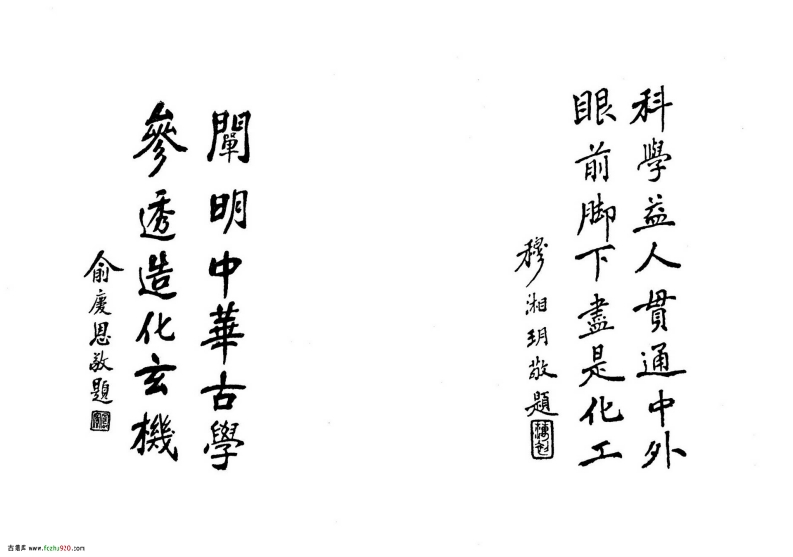 科學益人貫通中外
眼前脚下盡是化工
穆湘玥敬題
闡明中華古學
參透造化玄機
俞慶恩敬題
古籍库 www.fozhu920.com